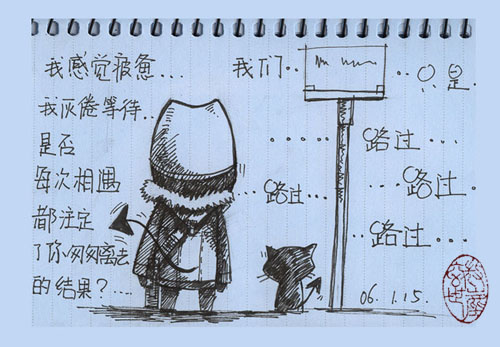 我感觉疲惫...
我厌倦等待..
是否
每次相遇
都注定
了你匆匆离去
的结果?....
我们..
..只是.
....路过...
...路过...
...路过.
...路过...
06.1.15.